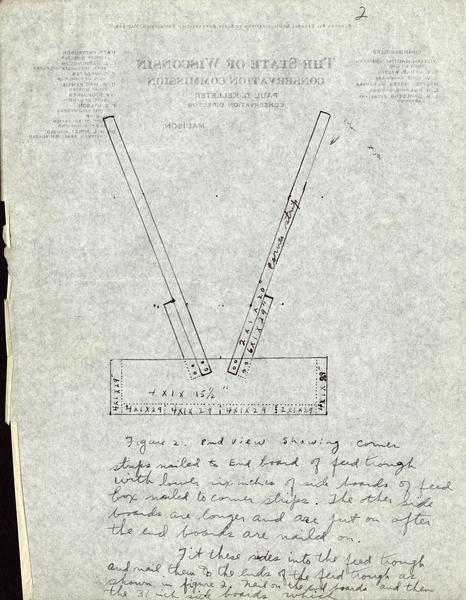 2
THE STATE OF WISCONSIN
CONSERVATION COMMISSION
PAUL D. KELLETER
CONSERVATION DIRECTOR
MADISON
corner strip
2 X 1 X 20"
6 X 1 X 29"
4 X 1 X 15½"
4X1X29"
4X1X29
4X1X29
4X1X29
2X1X29
Figure 2. end view showing corner
strips nailed to End board of feed trough
with lower six inches of side boards of feed
box nailed to corner strips. The other side
boards are longer and are put on after
the end boards are nailed on.
Fit these sides into the feed trough
and nail them to the ends of the feed trough as
shown in figure 2, nail on the end boards and then
the 31 inch side boards which